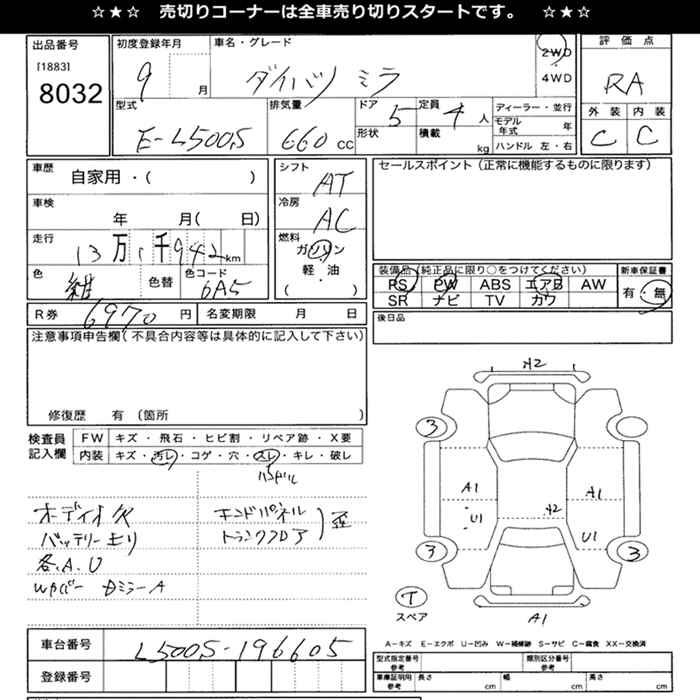 ☆★☆ 売切りコーナーは全車売り切りスタートです。 ☆★☆
出品番号
[1883]
8032
初度登録年月
9 月
車名・グレード
ダイハツ ミラ
2WD
4WD
評価点
RA
外装 内装
C C
型式
E-L500S
排気量
660 CC
ドア 5
形状
定員 4 人
積載 kg
ディーラー・並行
モデル年式 年
ハンドル 左・右
車歴
自家用・( )
車検
年 月( 日)
走行
13万1千942km
色 紺
色替
色コード
6A5
シフト
AT
冷房
AC
燃料
ガソリン
軽・油
( )
セールスポイント(正常に機能するものに限ります)
装備品(純正品に限り○をつけてください)
PS PW ABS エアB AW
SR ナビ TV カワ
新車保証書
有・無
R券 6970 円
名変期限 月 日
後日品
注意事項申告欄(不具合内容等は具体的に記入して下さい)
修復歴 有 (箇所 )
検査員
記入欄
FW キズ・飛石・ヒビ割・リペア跡・X要
内装 キズ・汚レ・コゲ・穴・スレ・キレ・破レ
ハンドル
オーディオ欠
バッテリー上り
各.A.U
WPバー ドミラーA
エンドパネル
トランクフロア
歪
A2
3
3
3
A1
U1
A2
A1
U1
T
スペア
A1
車台番号
L500S-196605
登録番号
A-キズ E-エクボ U-凹み W-補修跡 S-サビ C-腐食 XX-交換済
型式指定番号
参考
類別区分番号
参考
車庫証明用
参考
長さ cm
幅 cm
高さ cm